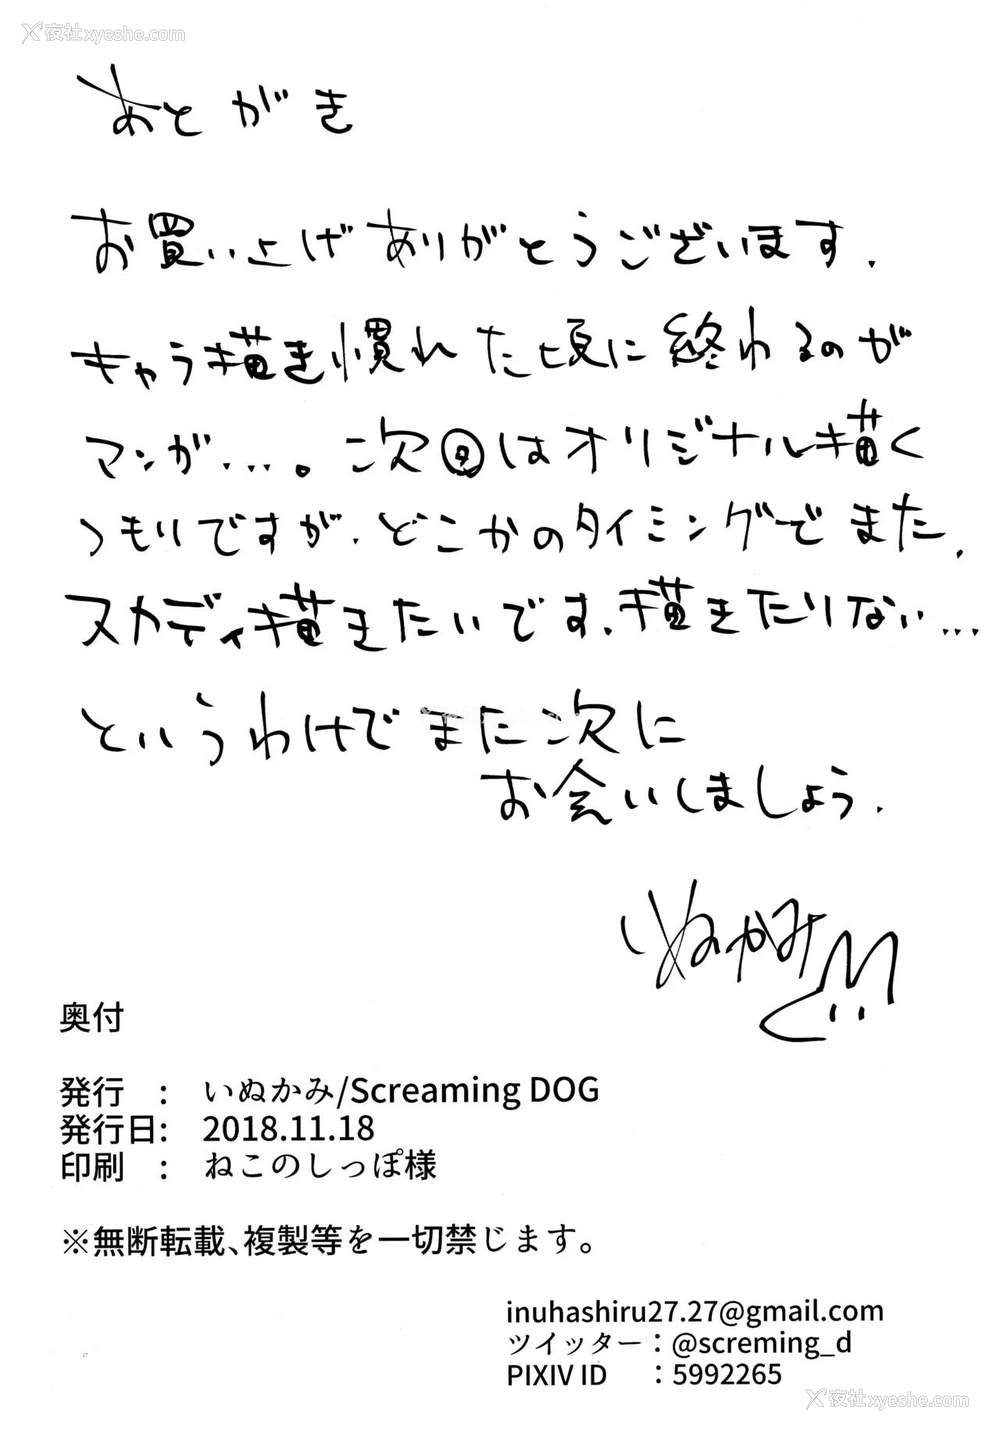 夜社xyeshe.com
あとがき
お買い上げありがとうございます.
キャラ描き慣れた頃に終わるのが
マンガ…。次回はオリジナル描く
つもりですが、どこかのタイミングでまた、
スカディ描きたいです、描きたりない…
というわけでまた次に
お会いしましょう.
いぬかみ
奥付
発行 : いぬかみ/Screaming DOG
発行日: 2018.11.18
印刷 : ねこのしっぽ様
※無断転載、複製等を一切禁じます。
inuhashiru27.27@gmail.com
ツイッター:@screming_d
PIXIV ID :5992265
夜社xyeshe.com